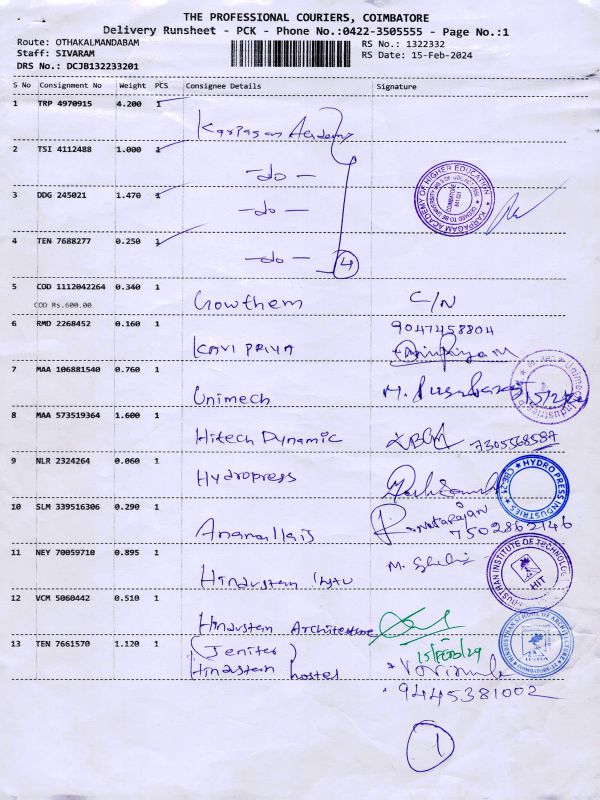 THE PROFESSIONAL COURIERS, COIMBATORE
Delivery Runsheet - PCK - Phone No.:0422-3505555 - Page No.:1
Route: OTHAKALMANDABAM
Staff: SIVARAM
DRS No.: DCJB132233201
RS No.: 1322332
RS Date: 15-Feb-2024
S No Consignment No Weight PCS Consignee Details Signature
1 TRP 4970915 4.200 1 Karpagam Academy
2 TSI 4112488 1.000 1 -do-
3 DDG 245021 1.470 1 -do-
4 TEN 7688277 0.250 1 -do- 4
KARPAGAM ACADEMY OF HIGHER EDUCATION
COIMBATORE
641 021
5 COD 1112042264 0.340 1 Gowthem C/N
COD Rs.600.00
6 RMD 2268452 0.160 1 KAVI PRIYA 9047458804
7 MAA 106881540 0.760 1 Unimech M.
8 MAA 573519364 1.600 1 Hitech Dynamic 7305568587
9 NLR 2324264 0.060 1 Hydropress
HYDRO PRESS INDUSTRIES
CBE-21
10 SLM 339516306 0.290 1 Anamallais P. Natarajan
7502862146
11 NEY 70059710 0.895 1 Hindustan M.
HINDUSTHAN INSTITUTE OF TECHNOLOGY
HIT
12 VCM 5060442 0.510 1 Hindustan Architecture
15/Feb/24
HINDUSTHAN SCHOOL OF ARCHITECTURE
13 TEN 7661570 1.120 1 (Jenifer)
Hindustan hostel
9445381002
1